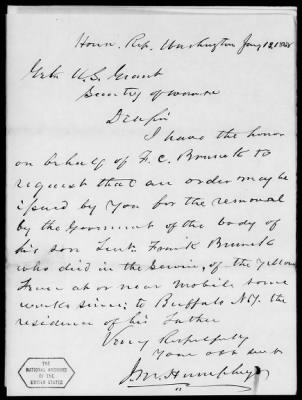 House. Rep. Washington Jany 12, 1868
Genl U. S. Grant
Secretary of War
Dear Sir
I have the honor
on behalf of F. C. Brunck to
request that an order may be
issued by You for the removal
by the Goverment of the body of
his son Lieut. Frank Brunck
who died in the Service, of the Yellow
Fever at or near Mobile some
weeks since; to Buffalo N.Y. the
residence of his Father
Very Respectfully
Your obt servt
J. M. Humphrey
THE
NATIONAL ARCHIVES
OF THE
UNITED STATES